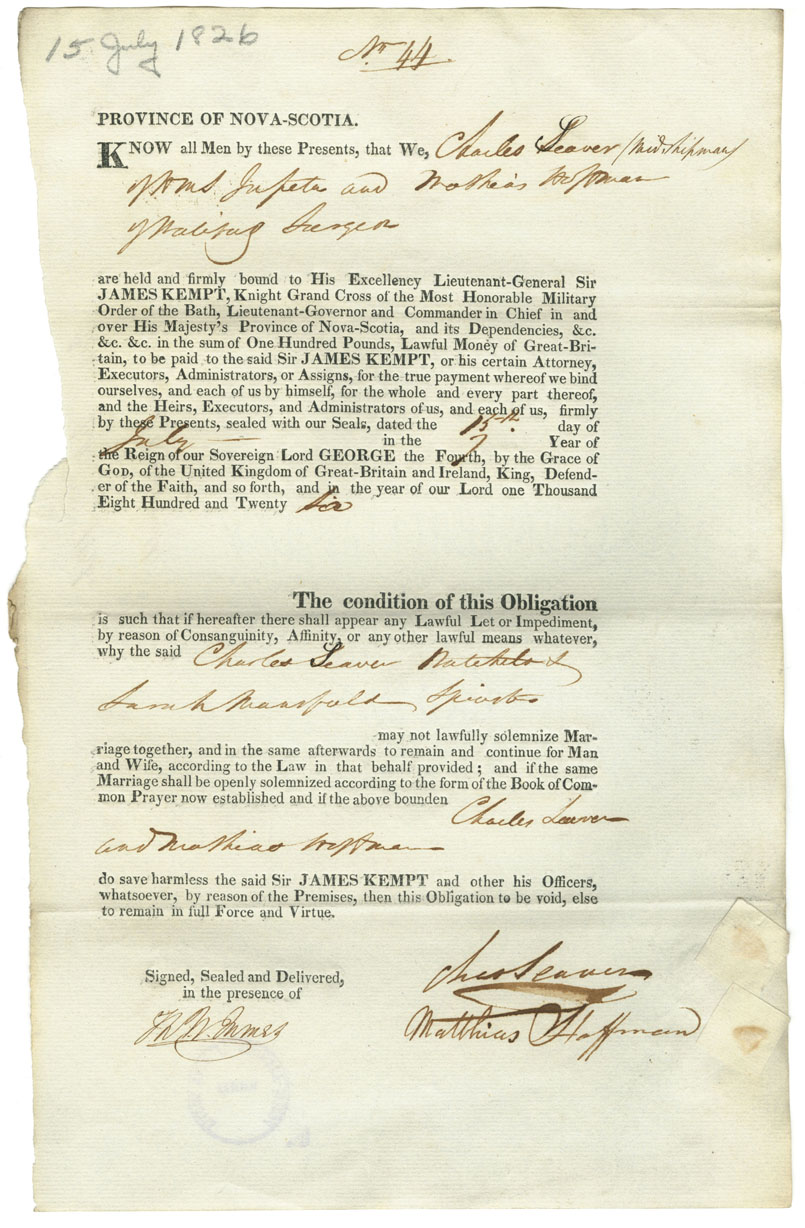 15 July 1826
No 44
PROVINCE OF NOVA-SCOTIA.
KNOW all Men by these Presents, that We, Charles Seaver (Midshipman)
of HMS Jupiter and Mathias Hoffman
of Halifax Surgeon
are held and firmly bound to His Excellency Lieutenant-General Sir
JAMES KEMPT, Knight Grand Cross of the Most Honorable Military
Order of the Bath, Lieutenant-Governor and Commander in Chief in and
over His Majesty's Province of Nova-Scotia, and its Dependencies, &c.
&c. &c. in the sum of One Hundred Pounds, Lawful Money of Great-Bri-
tain, to be paid to the said Sir JAMES KEMPT, or his certain Attorney,
Executors, Administrators, or Assigns, for the true payment whereof we bind
ourselves, and each of us by himself, for the whole and every part thereof,
and the Heirs, Executors, and Administrators of us, and each of us, firmly
by these Presents, sealed with our Seals, dated the 15th. day of
July in the 7 Year of
the Reign of our Sovereign Lord GEORGE the Fourth, by the Grace of
GOD, of the United Kingdom of Great-Britain and Ireland, King, Defend-
er of the Faith, and so forth, and in the year of our Lord one Thousand
Eight Hundred and Twenty Six
The condition of this Obligation
is such that if hereafter there shall appear any Lawful Let or Impediment,
by reason of Consanguinity, Affinity, or any other lawful means whatever,
why the said Charles Seaver Batchelor &
Sarah Mansfield Spinster
may not lawfully solemnize Mar-
riage together, and in the same afterwards to remain and continue for Man
and Wife, according to the Law in that behalf provided; and if the same
Marriage shall be openly solemnized according to the form of the Book of Com-
mon Prayer now established and if the above bounden
Charles Seaver
and Mathias Hoffman
do save harmless the said Sir JAMES KEMPT and other his Officers,
whatsoever, by reason of the Premises, then this Obligation to be void, else
to remain in full Force and Virtue.
Signed, Sealed and Delivered,
in the presence of
Chas Seaver
Matthias Hoffman